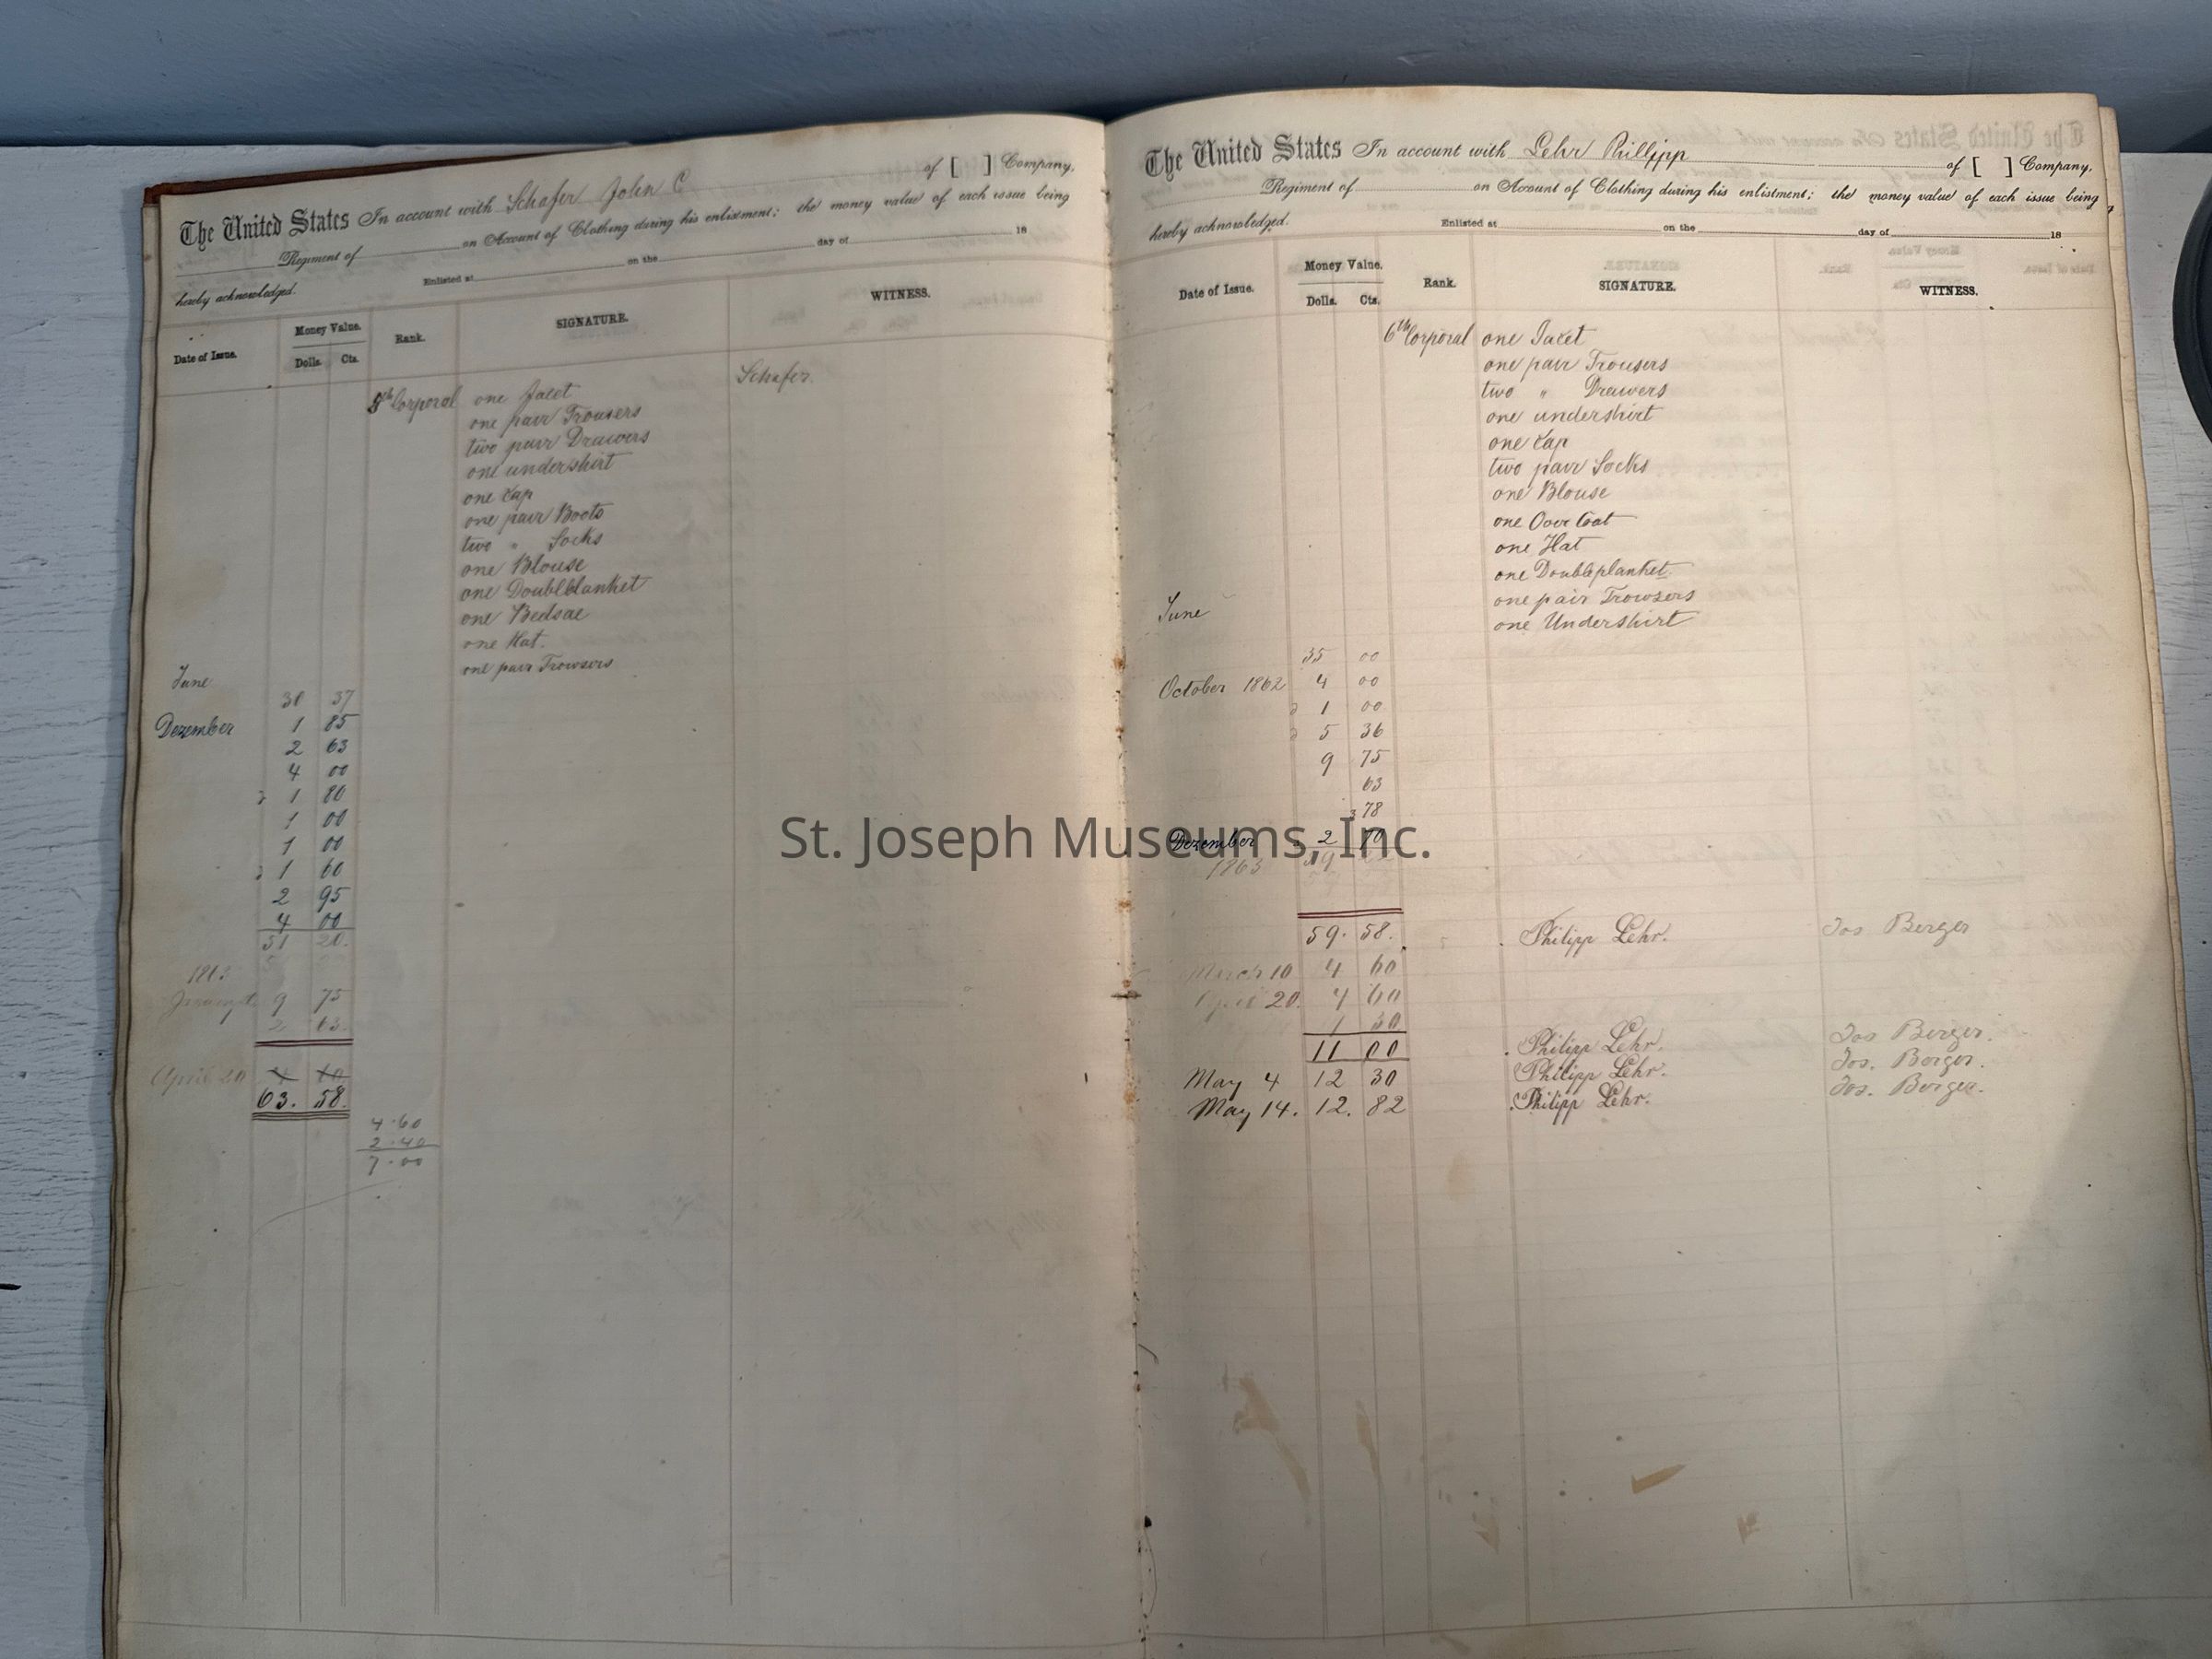 The United States In account with Schafer John C of [ ] Company,
Regiment of on Account of Clothing during his enlistment; the money value of each issue being
hereby acknowledged. Enlisted at on the day of 18
Date of Issue. Money Value. Dolls. Cts. Rank. SIGNATURE. WITNESS.
Schafer
5th Corporal one Jacet
one pair Trousers
two pair Drawers
one undershirt
one Cap
one pair Boots
two " Socks
one Blouse
one Doubleblanket
one Bedsac
one Hat.
June one pair Trowsers
30 37
Dezember 1 85
2 63
4 00
1 80
1 00
1 00
1 60
2 95
4 00
51 20.
1863
9 75
2 63.
April 20 4 60
63. 58.
4.60
2.40
7.00
The United States In account with Lehr Phillipp of [ ] Company,
Regiment of on Account of Clothing during his enlistment; the money value of each issue being
hereby acknowledged. Enlisted at on the day of 18
Date of Issue. Money Value. Dolls. Cts. Rank. SIGNATURE. WITNESS.
6th Corporal one Jacet
one pair Trousers
two " Drawers
one undershirt
one Cap
two pair Socks
one Blouse
one Over Coat
one Hat
one Doubleplanket
June one pair Trowsers
one Undershirt
35 00
October 1862 4 00
1 00
5 36
9 75
63
78
Dezember 2
1863
59. 58. Philipp Lehr. Jos Berger
March 10 4 60
April 20. 4 60
1 80
11 00 Philipp Lehr. Jos Berger.
May 4 12 30 Philipp Lehr. Jos. Berger.
May 14. 12. 82 Philipp Lehr. Jos. Berger.
St. Joseph Museums, Inc.